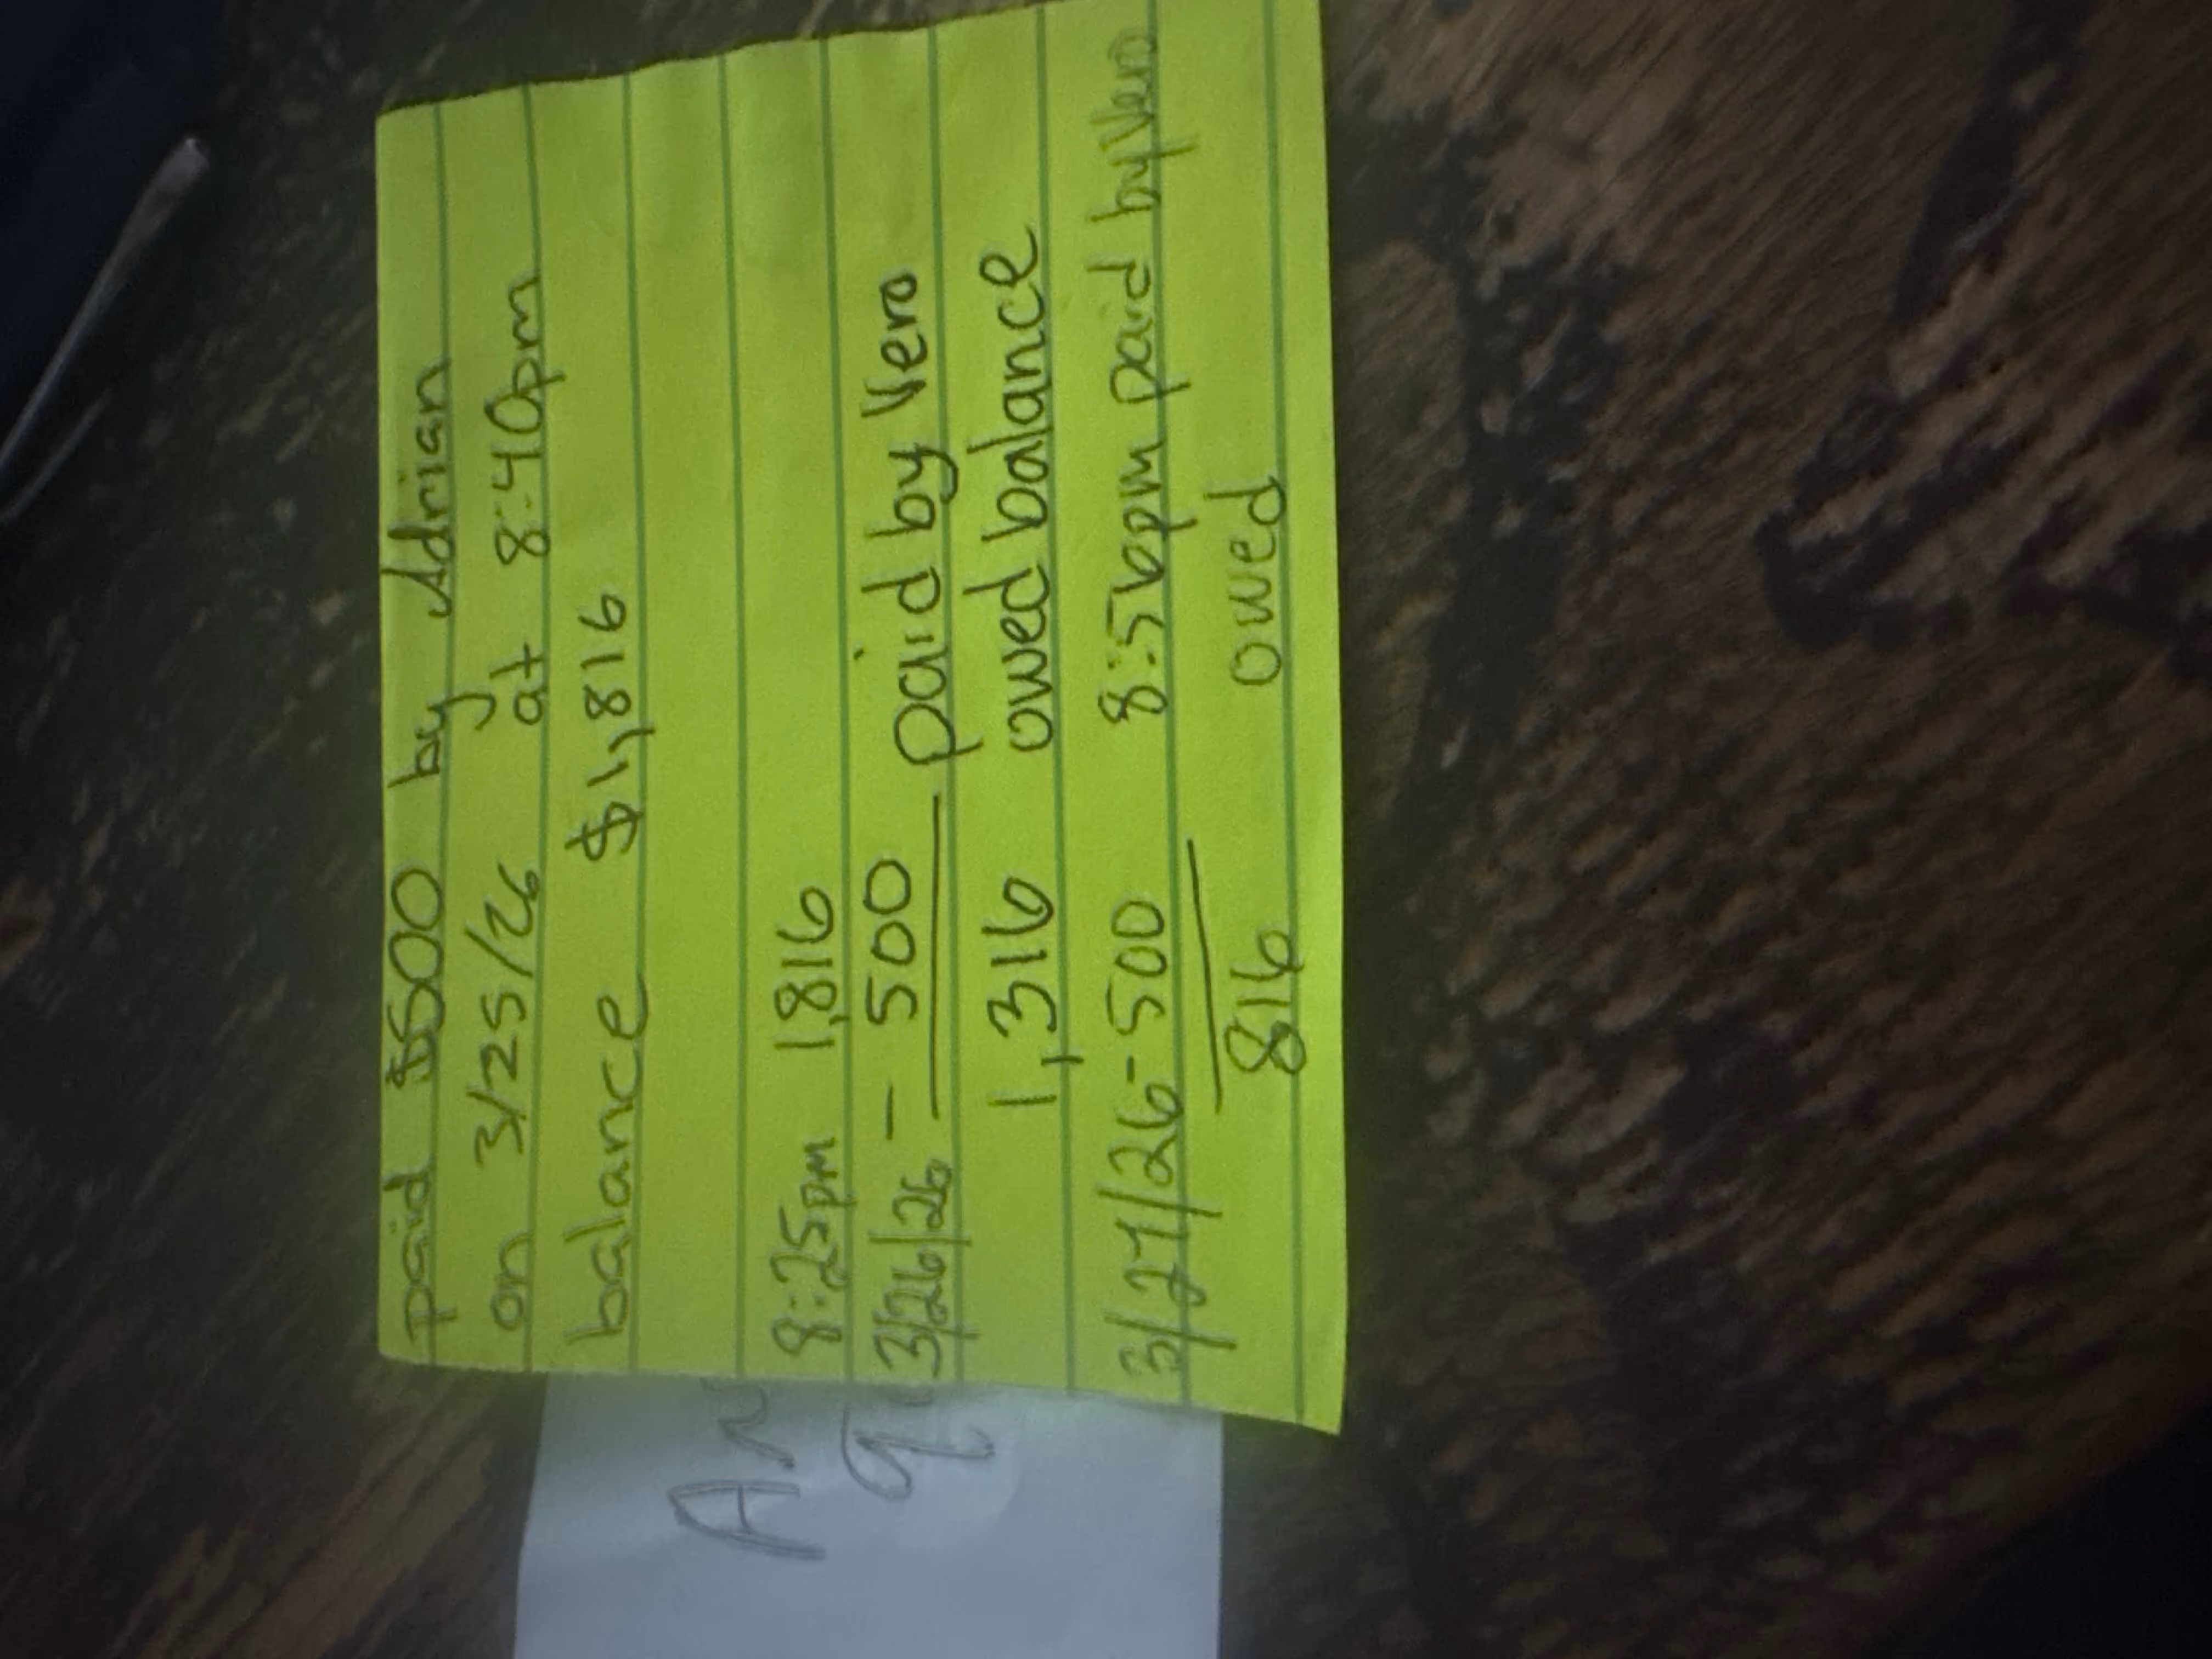 paid $500 by Adrian
on 3/25/26 at 8:40pm
balance $1,816
8:25pm 1,816
3/26/26 - 500 paid by Vero
1,316 owed balance
3/27/26 - 500 8:56pm paid by Vero
816 owed